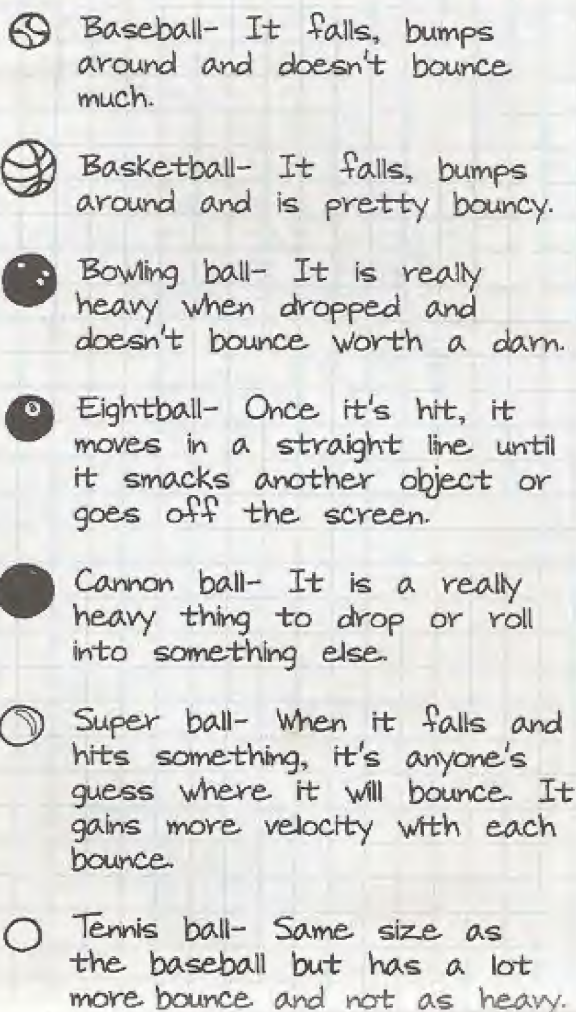 Baseball- It falls, bumps
around and doesn't bounce
much.
Basketball- It falls, bumps
around and is pretty bouncy.
Bowling ball- It is really
heavy when dropped and
doesn't bounce worth a darn.
Eightball- Once it's hit, it
moves in a straight line until
it smacks another object or
goes off the screen.
Cannon ball- It is a really
heavy thing to drop or roll
into something else.
Super ball- When it falls and
hits something, it's anyone's
guess where it will bounce. It
gains more velocity with each
bounce.
Tennis ball- Same size as
the baseball but has a lot
more bounce and not as heavy.